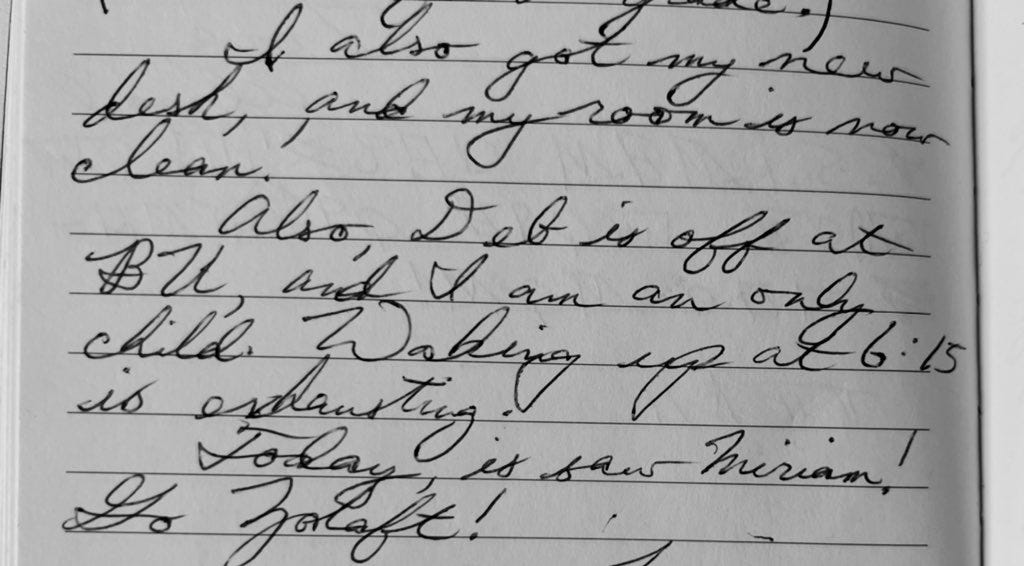 grade.)
I also got my new
desk, and my room is now
clean.
Also, Deb is off at
BU, and I am an only
child. Waking up at 6:15
is exhausting.
Today, is saw Miriam!
Go Zoloft!